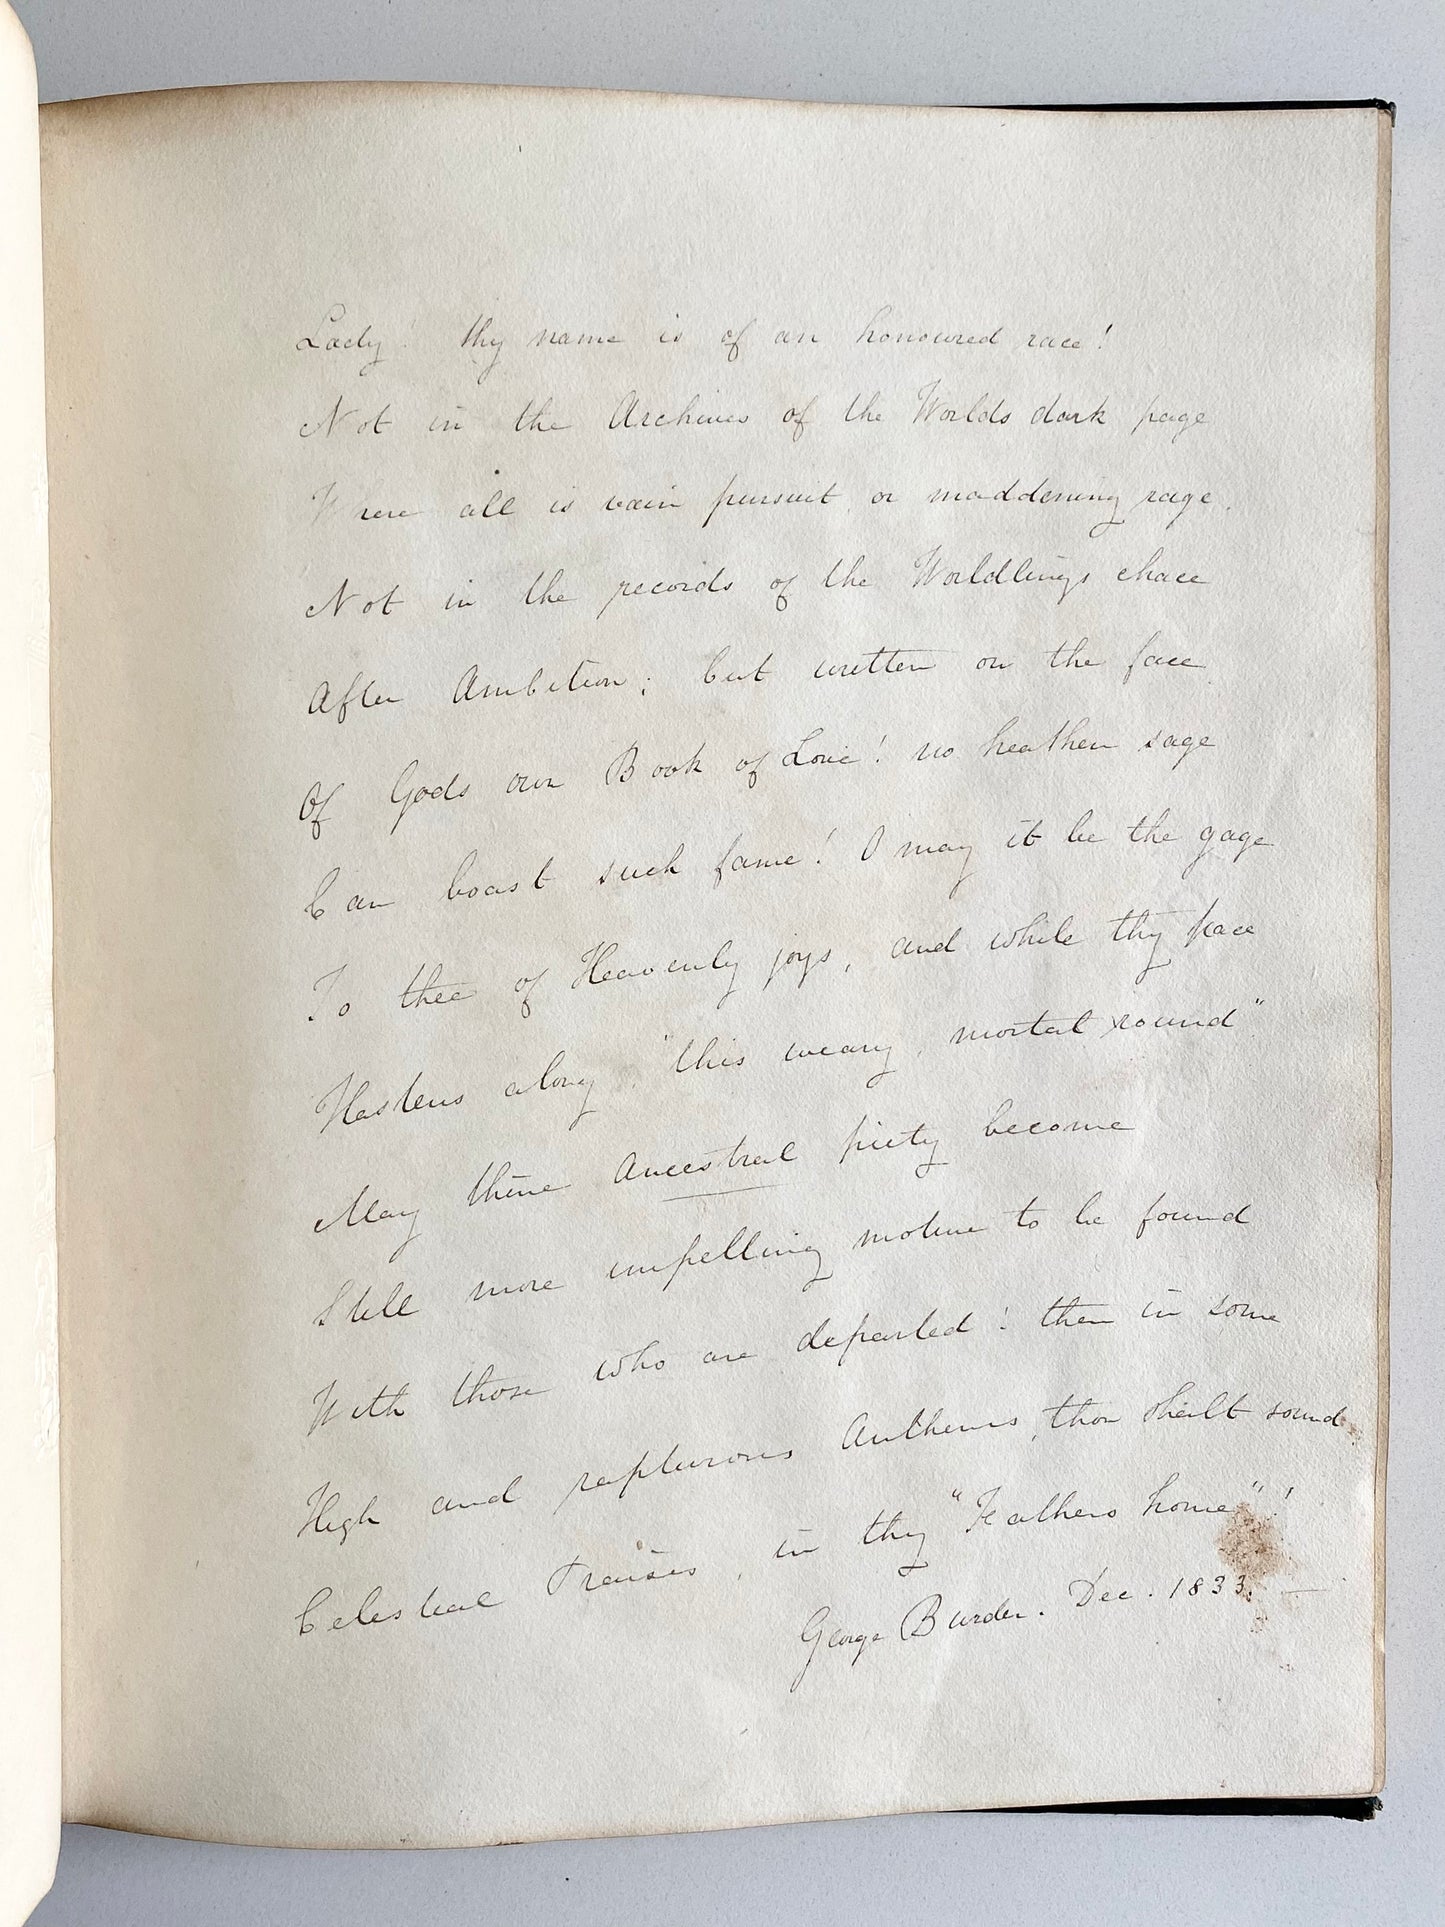 Lady! thy name is of an honoured race!
Not in the Archives of the Worlds dark page
Where all is vain pursuit or maddening rage.
Not in the records of the Worldlings chace
After Ambition; but written on the face
Of Gods own Book of Love! no heathen sage
Can boast such fame! O may it be the gage
To thee of Heavenly joys, and while thy pace
Hastens along, "this weary, mortal round"
May thine Ancestral piety become
Still more impelling motive to be found
With those who are departed! then in some
High and rapturous Anthems, thou shalt sound
Celestial Praises, in thy "Fathers home"!
George Burder. Dec. 1833. —